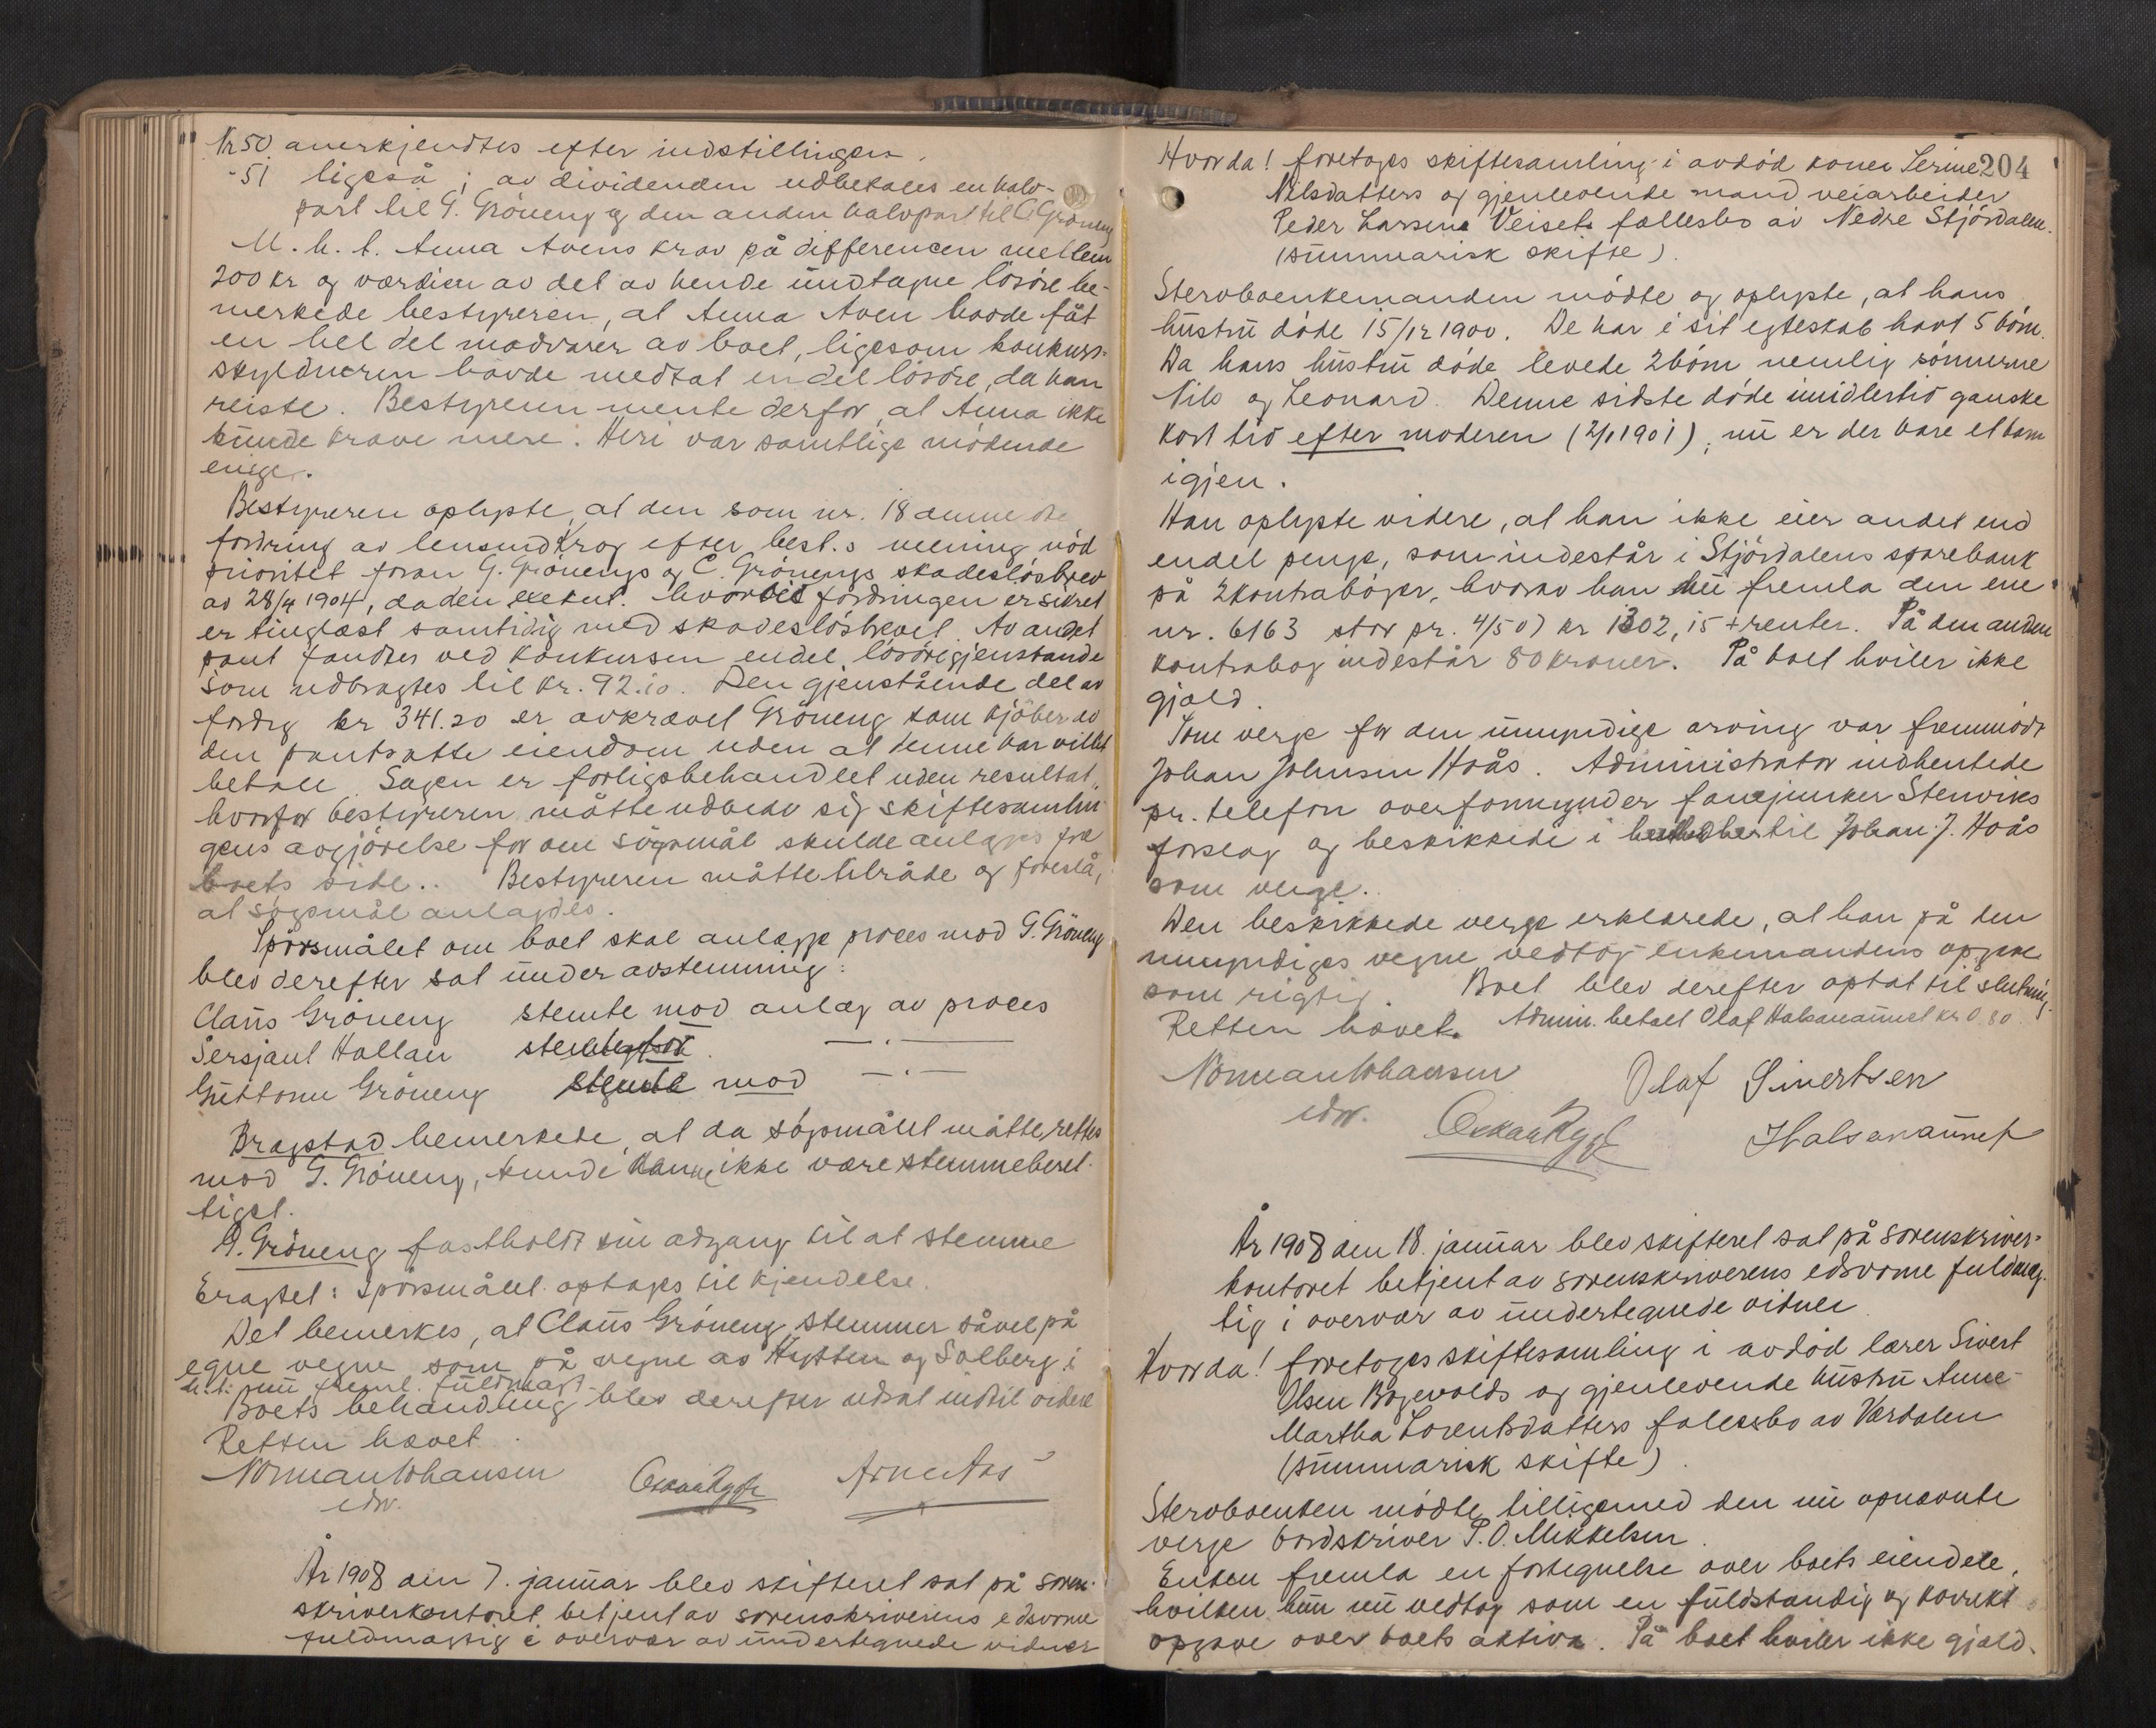 Nr 50 anerkjendtes efter indstillingen.
- 51 ligeså; av dividenden udbetales en halv-
part til G. Gröneng og den anden halvpart til C. Gröneng
M. h. t. Anna Avens krav på differencen mellem
200 kr og værdien av det av hende undtagne lösöre be-
merkede bestyreren, at Anna Aven havde fåt
en hel del madvarer av boet, ligesom konkurs-
skyldneren havde medtat en del lösöre, da han
reiste. Bestyreren mente derfor, at Anna ikke
kunde kræve mere. Heri var samtlige mödende
enige.
Bestyreren oplyste, at den som nr. 18 anmeldte
fordring av lensmd Krog efter best.s mening nöd
prioritet foran G. Grönengs og C. Grönengs skadeslösbrev
av 28/4 1904, da den exekut. hvorved fordringen er sikret
er tinglæst samtidig med skadeslösbrevet. Av andet
pant fandtes ved konkursen endel lösöregjenstande
som udbragtes til kr. 92.10. Den gjenstående del av
fordrg kr 341.20 er avkrævet Gröneng som kjöber av
den pantsatte eiendom uden at denne har villet
betale. Sagen er forligsbehandlet uden resultat,
hvorfor bestyreren måtte udbede sig skiftesamlin-
gens avgjörelse for om sögsmål skulde anlægges fra
boets side. Bestyreren måtte tilråde og foreslå,
at sögsmål anlagdes.
Spörsmålet om boet skal anlægge proces mod G. Gröneng
blev derefter sat under avstemning:
Claus Gröneng stemte mod anlæg av proces
Sersjant Hallan stemte for — . —
Guttorm Gröneng stemte mod — . —
Bragstad bemerkede, at da sögsmålet måtte rettes
mod G. Gröneng, kunde denne ikke være stemmeberet-
tiget.
G. Gröneng fastholdt sin adgang til at stemme
Eragtet: Spörsmålet optages til kjendelse.
Det bemerkes, at Claus Gröneng stemmer såvel på
egne vegne som på vegne av Hytten og Solberg i
h. t. nu freml. fuldmagt
Boets behandling blev derefter udsat indtil videre
Retten hævet.
Norman Johansen
edsv.
Oskar Rygg
Arne Aas
År 1908 den 7. januar blev skifteret sat på soren-
skriverkontoret betjent av sorenskriverens edsvorne
fuldmægtig i overvær av undertegnede vidner
204
Hvorda! foretages skiftesamling i avdöd kone Serine
Nilsdatters og gjenlevende mand veiarbeider
Peder Larsen Veiset fællesbo av Nedre Stjördalen.
(summarisk skifte).
Stervboenkemanden mödte og oplyste, at hans
hustru döde 15/12 1900. De har i sit egteskab havt 5 börn.
Da hans hustru döde levede 2 börn nemlig sönnerne
Nils og Leonard. Denne sidste döde imidlertid ganske
kort tid efter moderen (2/1 1901), nu er der bare et barn
igjen.
Han oplyste videre, at han ikke eier andet end
endel penge, som indestår i Stjördalens sparebank
på 2 kontraböger, hvorav han nu fremla den ene
nr. 6163 stor pr. 4/5 07 kr 1302,15 + renter. På den anden
kontrabog indestår 80 kroner. På boet hviler ikke
gjæld.
Som verge for den umyndige arving var fremmödt
Johan Johnsen Hoås. Administrator indhentede
pr. telefon overformynder fanejunker Stenviks
forslag og beskikkede i henhold hertil Johan J. Hoås
som verge.
Den beskikkede verge erklærede, at han på den
umyndiges vegne vedtog enkemandens opgave
som rigtig. Boet blev derefter optat til slutning.
Retten hævet. Admin. betalt Olaf Halsanaunet kr 0.80.
Norman Johansen
edsv.
Oskar Rygg
Olaf Sivertsen
Halsanaunet
År 1908 den 18. januar blev skifteret sat på sorenskriver-
kontoret betjent av sorenskriverens edsvorne fuldmæg-
tig i overvær av undertegnede vidner
Hvorda! foretoges skiftesamling i avdöd lærer Sivert
Olsen Bagevolds og gjenlevende hustru Anne-
Martha Lorentsdatters fælesbo av Værdalen
(summarisk skifte).
Stervboenken mödte tilligemed den nu opnævnte
verge bordskriver P. O. Mikkelsen.
Enken fremla en fortegnelse over boets eiendele,
hvilken hun nu vedtog som en fuldstændig og korrekt
opgave over boets aktiva. På boet hviler ikke gjæld.